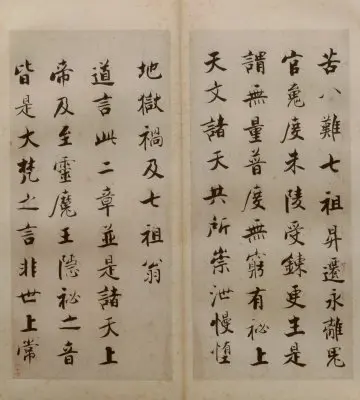 苦八難七祖昇遷永離鬼
官魂度朱陵受鍊更生是
謂無量普度無窮有祕上
天文諸天共所崇泄慢墮
地獄禍及七祖翁
道言此二章並是諸天上
帝及至靈魔王隱祕之音
皆是大梵之言非世上常